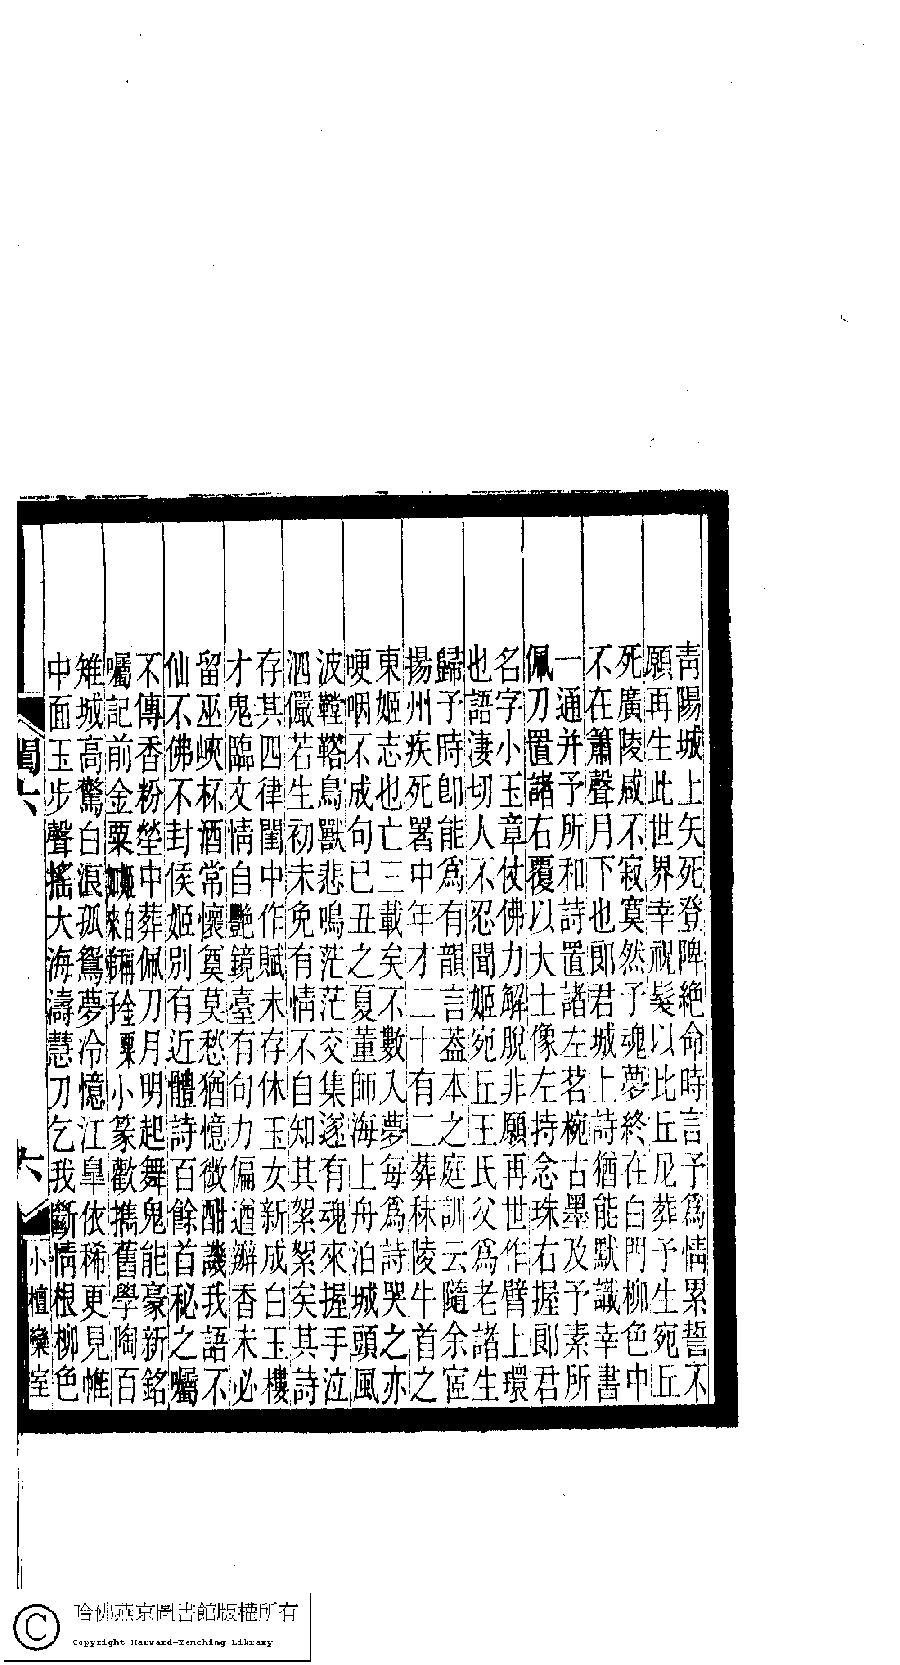 青陽城上矢死登陴絶命時言予爲情累誓不
願再生此世界幸視髮以比丘尼葬予生宛丘
死廣陵咸不寂寞然予魂夢終在白門柳色中
不在簫聲月下也郎君城上詩猶能默識幸書
一通并予所和詩置諸左茗椀古墨及予素所
佩刀置諸右覆以大士像左持念珠右握郎君
名字小玉章仗佛力解脫非願再世作臂上環
也語淒切人不忍聞姬宛丘王氏父爲老諸生
歸予時卽能爲有韻言葢本之庭訓云隨余宦
揚州疾死署中年才二十有二葬秣陵牛首之
東姬志也亡三載矣不數入夢每爲詩哭之亦
哽咽不成句已丑之夏董師海上舟泊城頭風
波鞺鞳鳥獸悲鳴茫茫交集遂有魂來握手泣
泗儼若生初未免有情不自知其絮絮矣其詩
存其四律閨中作賦未存休玉女新成白玉樓
才鬼臨文情自艷鏡臺有句力偏遒瓣香未必
留巫峽杯酒常懷奠莫愁猶憶微酣譏我語不
仙不佛不封侯姬別有近體詩百餘首秘之囑
不傳香粉塋中葬佩刀月明起舞鬼能豪新銘
囑記前金粟小篆歡攜舊學陶百
雉城高驚白浪孤鴛夢冷憶江皐依稀更見帷
中面玉步聲搖大海濤慧刀乞我斷情根柳色
閏六
六
小檀欒室
哈佛燕京圖書館版權所有
Copyright Harvard-Yenching Library